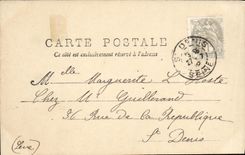 CARTE POSTALE
Ce côté est exclusivement réservé à l'adresse
ST DENIS
SEINE
Melle Marguerite Lacoste
Chez Mr Guillerand
36 Rue de la République
St Denis
(Seine)